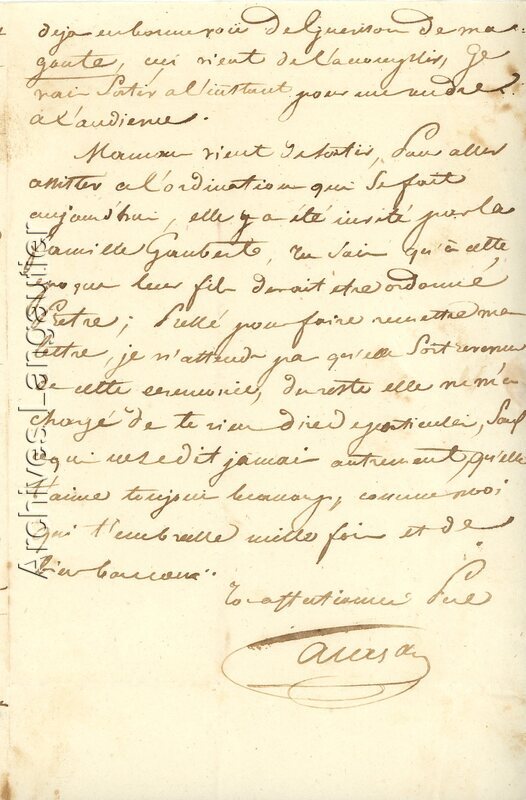 deja en bonne voie de Guerison de ma
goute, qui vient de l'accomplir, Je
vais Sortir a l'instant pour me rendre
a l'audience.
Maman vient de Sortir, Pour aller
assitter a l'ordination qui se fait
aujourd'hui, elle y a été invité par la
famille Gaubert, tu sais qu'à cette
epoque leur fils devait etre ordonné
Pretre; Pressé pour faire remettre ma
lettre, je n'attends pas qu'elle soit revenue
de cette ceremonie, du reste elle ne m'a
chargé de te rien dire de particulier, Sauf
qui ne se dit jamais autrement, qu'elle
t'aime toujours beaucoup, comme moi
qui t'embrasse mille fois et de
bien bon coeur.
to affectionné Pere
Archives Langautier